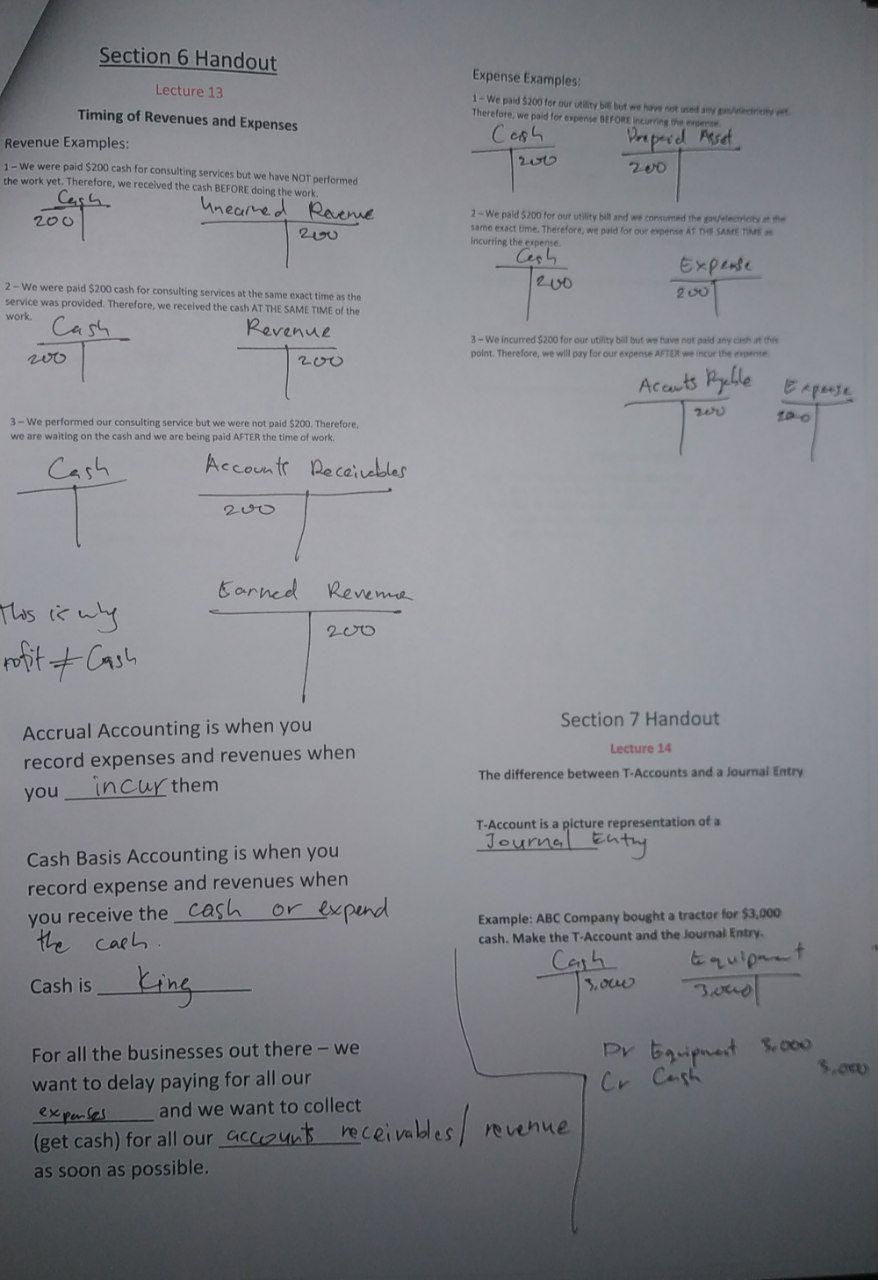 Section 6 Handout
Lecture 13
Timing of Revenues and Expenses
Revenue Examples:
1 – We were paid $200 cash for consulting services but we have NOT performed
the work yet. Therefore, we received the cash BEFORE doing the work.
Cash Unearned Revenue
200 200
2 – We were paid $200 cash for consulting services at the same exact time as the
service was provided. Therefore, we received the cash AT THE SAME TIME of the
work.
Cash Revenue
200 200
3 – We performed our consulting service but we were not paid $200. Therefore,
we are waiting on the cash and we are being paid AFTER the time of work.
Cash Accounts Receivables
200
Earned Revenue
200
This is why
rofit ≠ Cash
Accrual Accounting is when you
record expenses and revenues when
you incur them
Cash Basis Accounting is when you
record expense and revenues when
you receive the cash or expend
the cash.
Cash is King
For all the businesses out there – we
want to delay paying for all our
expenses and we want to collect
(get cash) for all our accounts receivables/ revenue
as soon as possible.
Expense Examples:
1 – We paid $200 for our utility bill but we have not used any gas/electricity yet.
Therefore, we paid for expense BEFORE incurring the expense.
Cash Prepaid Asset
200 200
2 – We paid $200 for our utility bill and we consumed the gas/electricity at the
same exact time. Therefore, we paid for our expense AT THE SAME TIME as
incurring the expense.
Cash Expense
200 200
3 – We incurred $200 for our utility bill but we have not paid any cash at this
point. Therefore, we will pay for our expense AFTER we incur the expense.
Accounts Payable Expense
200 200
Section 7 Handout
Lecture 14
The difference between T-Accounts and a Journal Entry
T-Account is a picture representation of a
Journal Entry
Example: ABC Company bought a tractor for $3,000
cash. Make the T-Account and the Journal Entry.
Cash Equipment
3,000 3,000
Dr Equipment 3,000
Cr Cash 3,000